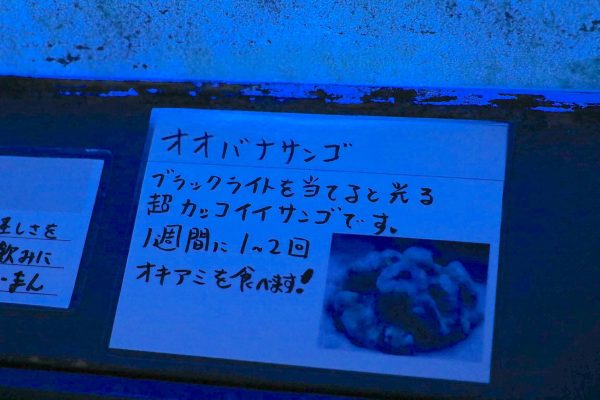 オオバナサンゴ
ブラックライトを当てると光る
超カッコイイサンゴです。
1週間に1~2回
オキアミを食べます!
しさを
飲みに
まん